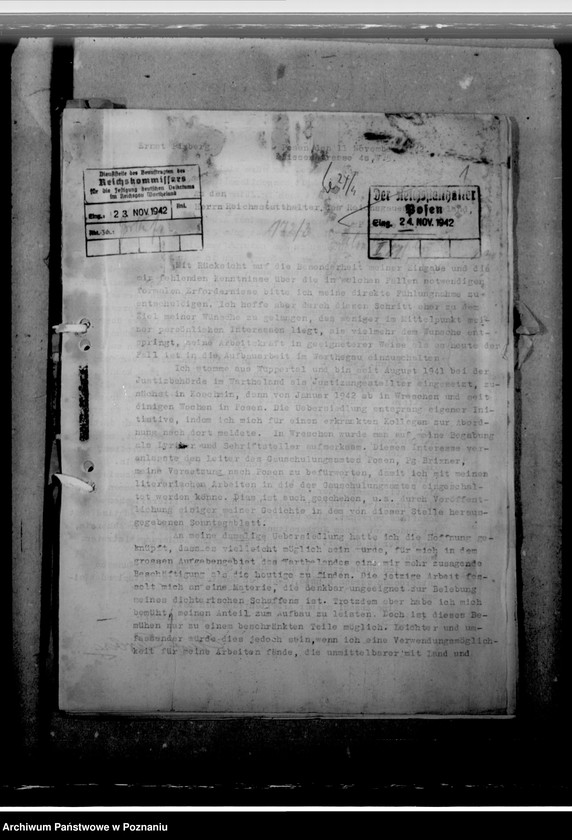 Ernst
Posen, den 11 November
Dienststelle des Beauftragten des
Reichskommissars
für die Festigung deutschen Volkstums
im Reichsgau Wartheland
Eing. 23. NOV. 1942 Anl.
Der Reichsstatthalter
Posen
Eing. 24. NOV. 1942
1
Herrn Reichsstatthalter
Mit Rücksicht auf die Besonderheit meiner Eingabe und die
mir fehlenden Kenntnisse über die in solchen Fällen notwendigen
formalen Erfordernisse bitte ich meine direkte Fühlungnahme zu
entschuldigen. Ich hoffe aber durch diesen Schritt eher zu dem
Ziel meiner Wünsche zu gelangen, das weniger im Mittelpunkt mei-
ner persönlichen Interessen liegt, als vielmehr dem Wunsche ent-
springt, meine Arbeitskraft in geeigneterer Weise als es heute der
Fall ist in die Aufbauarbeit im Warthegau einzuschalten.
Ich stamme aus Wuppertal und bin seit August 1941 bei der
Justizbehörde im Wartheland als Justizangestellter eingesetzt, zu-
nächst in Koschmin, dann von Januar 1942 ab in Wreschen und seit
einigen Wochen in Posen. Die Uebersiedlung entsprang eigener Ini-
tiative, indem ich mich für einen erkrankten Kollegen zur Abord-
nung nach dort meldete. In Wreschen wurde man auf meine Begabung
als Lyriker und Schriftsteller aufmerksam. Dieses Interesse ver-
anlasste den Leiter des Gauschulungsamtes Posen, Pg
meine Versetzung nach Posen zu befürworten, damit ich mit meinen
literarischen Arbeiten in die des Gauschulungsamtes eingeschal-
tet werden könne. Dies ist auch geschehen, u.a. durch Veröffent-
lichung einiger meiner Gedichte in dem von dieser Stelle heraus-
gegebenen Sonntagsblatt.
An meine damalige Uebersiedlung hatte ich die Hoffnung ge-
knüpft, dass es vielleicht möglich sein würde, für mich in dem
grossen Aufgabengebiet des Warthelandes eine mir mehr zusagende
Beschäftigung als die heutige zu finden. Die jetzige Arbeit fes-
selt mich an eine Materie, die denkbar ungeeignet zur Belebung
meines dichterischen Schaffens ist. Trotzdem aber habe ich mich
bemüht, meinen Anteil zum Aufbau zu leisten. Doch ist dieses Be-
mühen nur zu einem beschränkten Teile möglich. Leichter und um-
fassender würde dies jedoch sein, wenn ich eine Verwendungsmöglich-
keit für meine Arbeiten fände, die unmittelbarer mit Land und
Archiwum Państwowe w Poznaniu